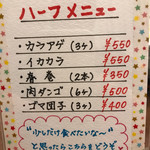 ハーフメニュー
・カラアゲ(3ヶ) ¥550
・イカカラ ¥550
・春巻(2本) ¥350
・肉ダンゴ(6ヶ) ¥500
・ゴマ団子(3ヶ) ¥400
"少しだけ食べたいな〜"
と思ったらこちらをどうぞ